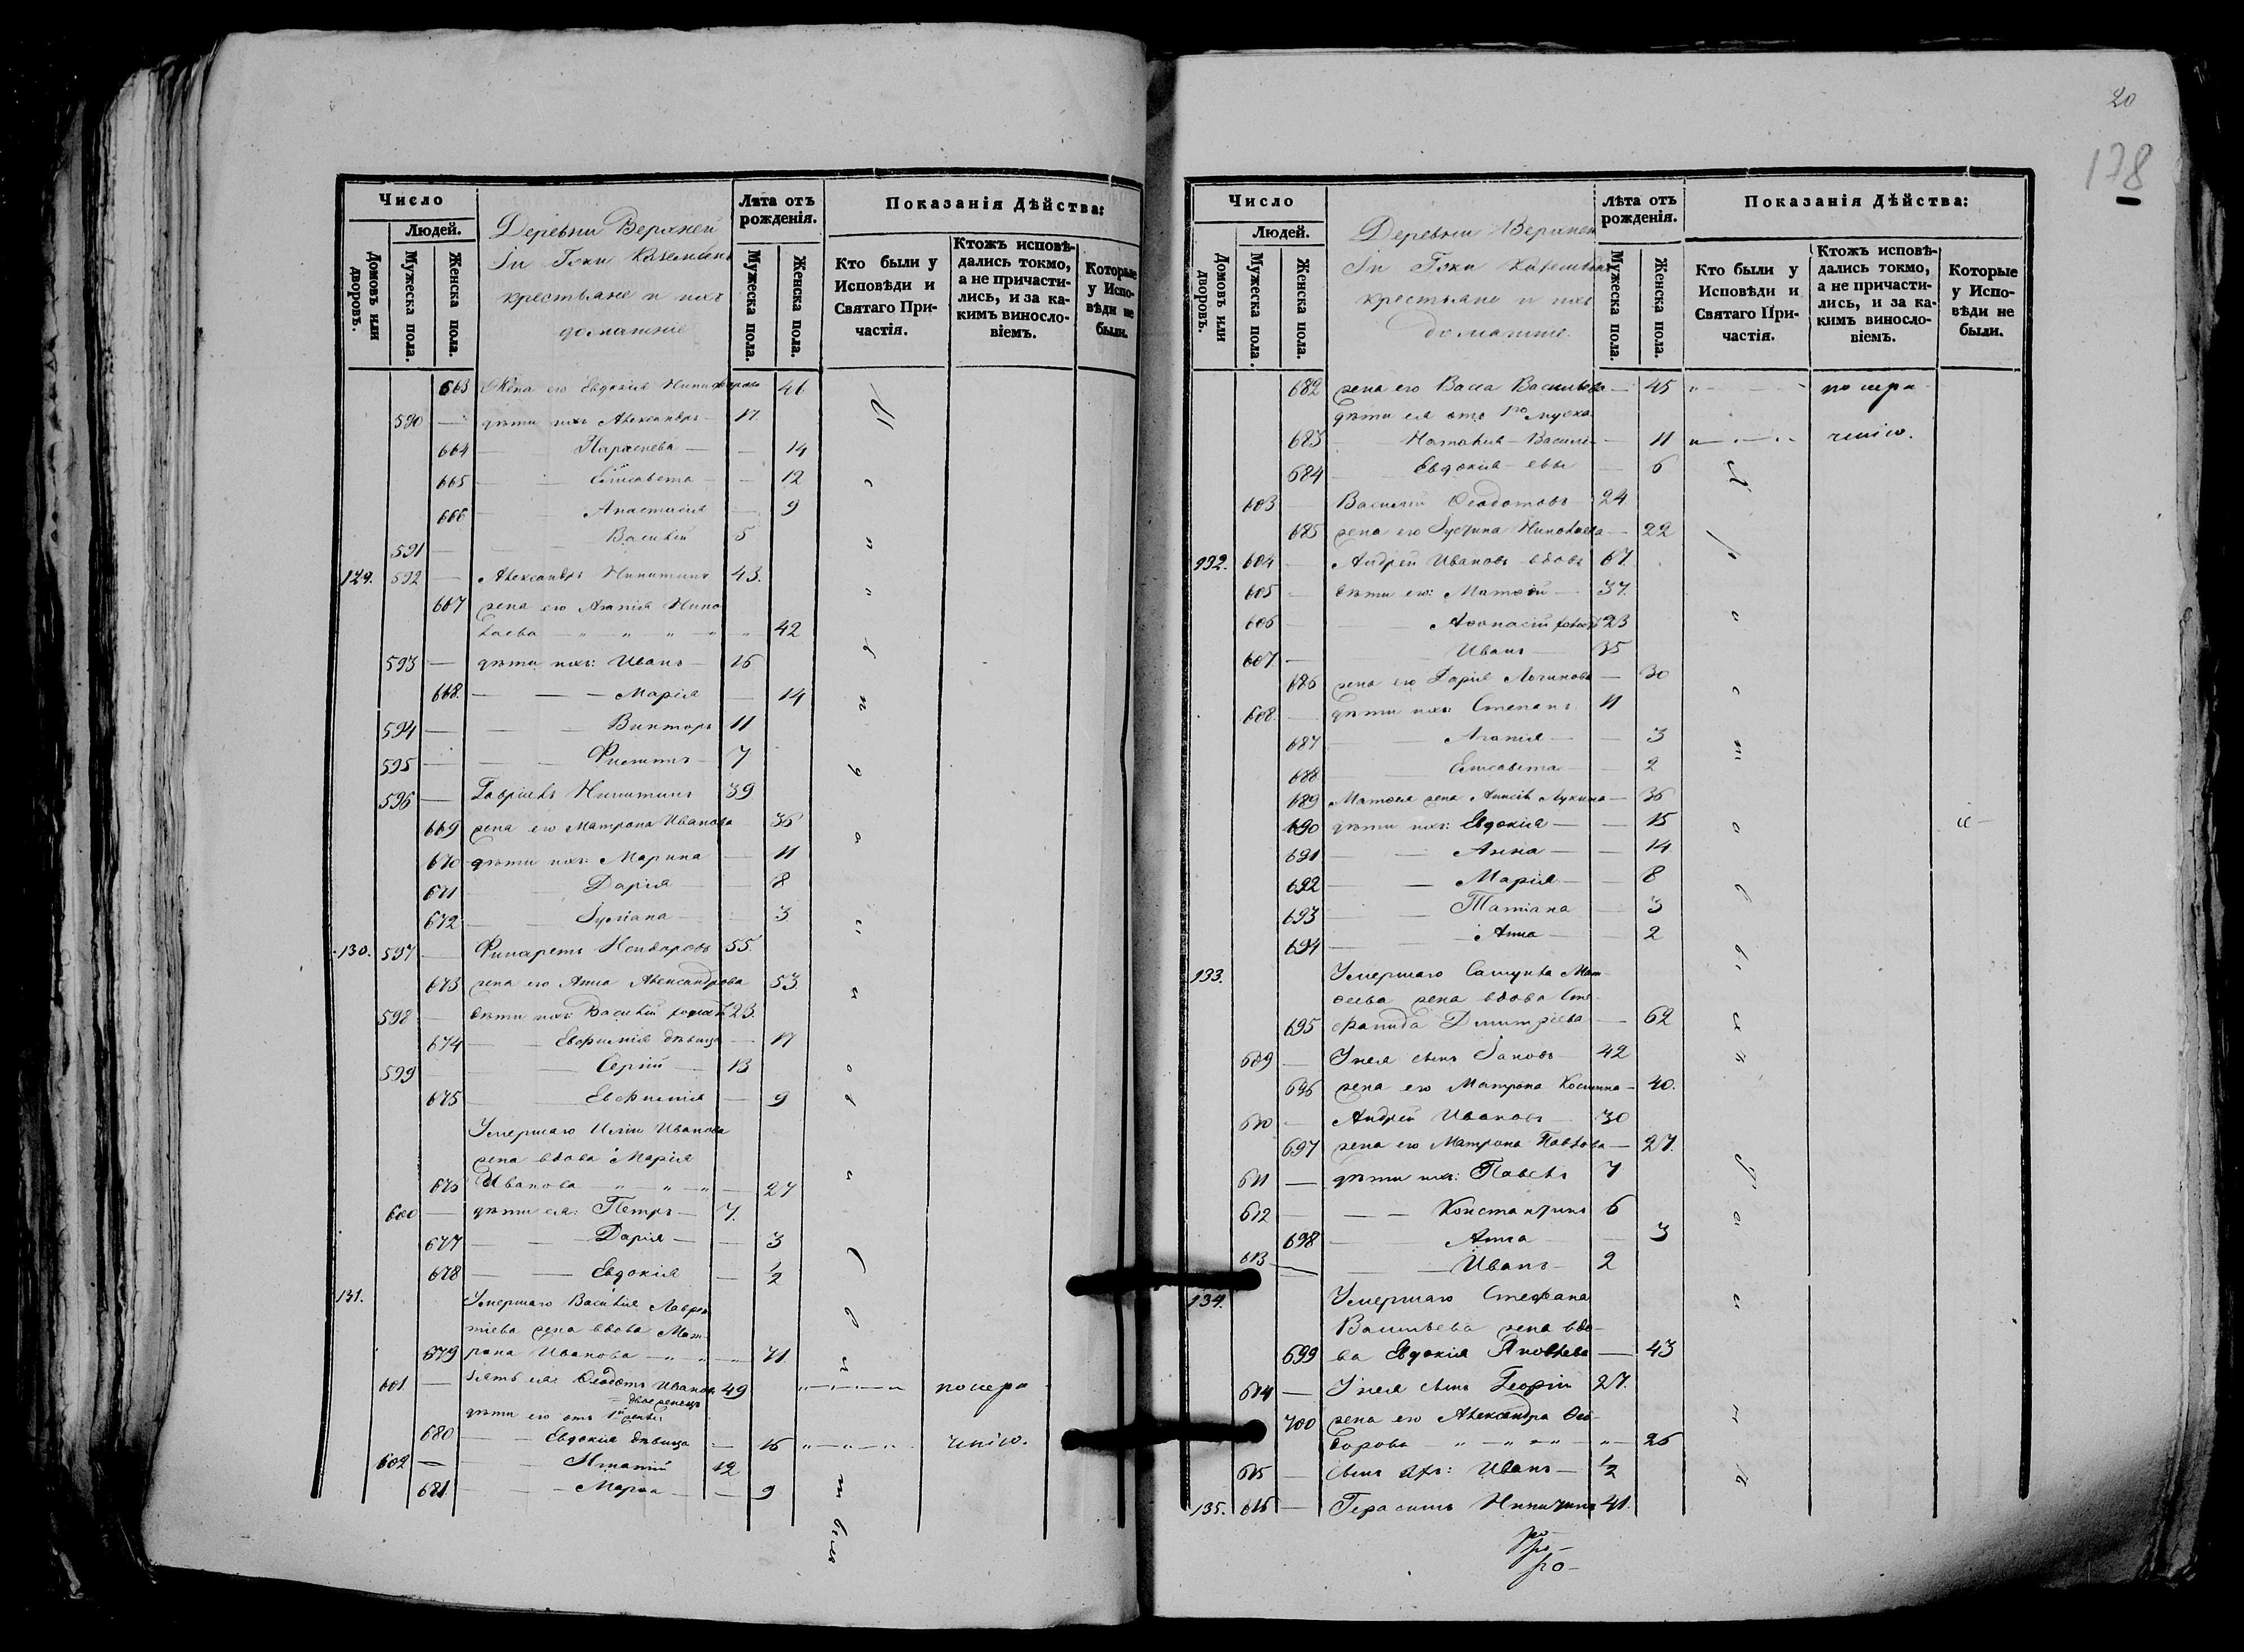 Число
Людей.
Домовъ или дворовъ.
Мужеска пола.
Женска пола.
Деревни Верхней
крестьяне и ихъ
домашніе
Лѣта отъ рожденія.
Мужеска пола.
Женска пола.
Показанія Дѣйства:
Кто были у Исповѣди и Святаго Причастія.
Ктожъ исповѣдались токмо, а не причастились, и за какимъ винословіемъ.
Которые у Исповѣди не были.
663 Жена его Евдокія 46
590 — дѣти ихъ Александръ 17.
664 Параскева — 14
665 Елисавета — 12
666 Анастасія — 9
591 — Василій 5
129. 592 — Александръ Никитинъ 43.
667 жена его Агапія Нико
лаева — „ — „ — „ 42
593 — дѣти ихъ: Иванъ — 16
668. — — Марія — 14
594 — Викторъ 11
595 — Филиппъ — 7
596 — Гавріилъ Никитинъ 39
669 жена его Матрона Иванова 36
670 дѣти ихъ: Марина — 11
671 Дарія — 8
672 Іуліана — 3
130. 597 — 55.
673 жена его Анна Александрова 53
598 — дѣти ихъ: Василій холостъ 23.
674 — Евфимія дѣвица — 17
599 — Сергій — 13
675 — Евфимія — 9
Умершаго Иліи Иванова
жена вдова Марія
676 Иванова — „ — „ — 27
600 — дѣти ея: Петръ — 7.
677 — Дарія — 3
678 — Евдокія — 1/2
131. Умершаго Василія Лаврен
тіева жена вдова Мат
679 рона Иванова — „ — 71.
601. — зять ея Ѳеодотъ Ивановъ 49 „ — „ — „ по чере
двоеженецъ
дѣти его отъ 1й жены
680 — Евдокія дѣвица — 16 „ — „ — „ чнію.
602 — Игнатій 12
681 — Марѳа — 9
20
178
Число
Людей.
Домовъ или дворовъ.
Мужеска пола.
Женска пола.
Деревни Верхней
крестьяне и ихъ
домашніе.
Лѣта отъ рожденія.
Мужеска пола.
Женска пола.
Показанія Дѣйства:
Кто были у Исповѣди и Святаго Причастія.
Ктожъ исповѣдались токмо, а не причастились, и за какимъ винословіемъ.
Которые у Исповѣди не были.
682 жена его Васса Васильева — 45
дѣти ея отъ 1го мужа
683 — Наталія — Василь — 11
684 Евдокія — евы — 6
603 — Василій Ѳеодотовъ 24
685 жена его Іустина Николаева — 22
132. 604 — Андрей Ивановъ вдовъ 67.
605 — дѣти его: Матѳій — 37.
606 — Аѳонасій холостъ 23
607 — Иванъ — 35
686 жена его Дарія Логинова — 30
608. — дѣти ихъ: Степанъ 11
687 — Агапія — 3
688 — Елисавета — 2
689 Матѳея жена Анисія Лукина — 36
690 дѣти ихъ: Евдокія — 15
691 — Анна — 14
692 — Марія — 8
693 — Татіана — 3
694 — Анна — 2
133. Умершаго Самуила Мат
ѳеева жена вдова Сте
695 фанида Димитріева — 62
609 — У нея сынъ Іаковъ 42
696 жена его Матрона Космина — 40.
610 — Андрей Ивановъ 30
697 жена его Матрона Павлова — 27.
611 — дѣти ихъ: Павелъ 7
612 — Константинъ 6
698 — Анна — 3
613 — Иванъ — 2
134. Умершаго Стефана
Васильева жена вдо
699 ва Евдокія Яковлева — 43
614 — У нея сынъ Георгій 27.
700 жена его Александра Ѳео
дорова — „ — „ — 26
615 — сынъ ихъ: Иванъ — 1/2
135. 616 — Герасимъ Никитинъ 41.